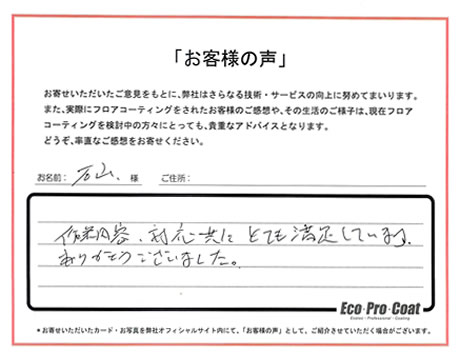 「お客様の声」
お寄せいただいたご意見をもとに、弊社はさらなる技術・サービスの向上に努めてまいります。
また、実際にフロアコーティングをされたお客様のご感想や、その生活のご様子は、現在フロア
コーティングを検討中の方々にとっても、貴重なアドバイスとなります。
どうぞ、率直なご感想をお寄せください。
お名前: 石山 様 ご住所:
作業内容、対応共に とても満足しています。
ありがとうございました。
Eco・Pro・Coat
*お寄せいただいたカード・お写真を弊社オフィシャルサイト内にて、「お客様の声」として、ご紹介させていただく場合がございます。